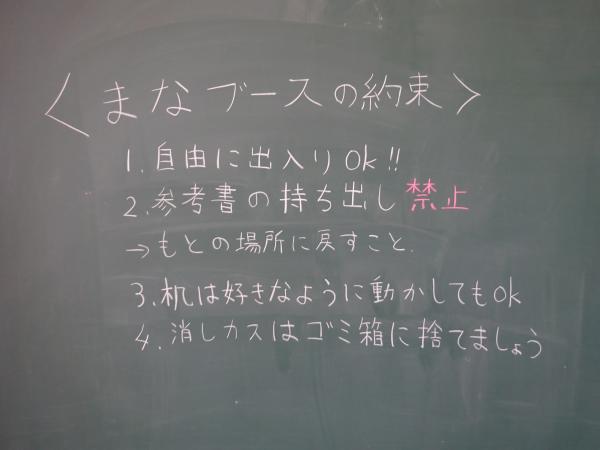 ＜まなブースの約束＞
1.自由に出入りOk!!
2.参考書の持ち出し禁止
→もとの場所に戻すこと.
3.机は好きなように動かしてもOk
4.消しカスはゴミ箱に捨てましょう